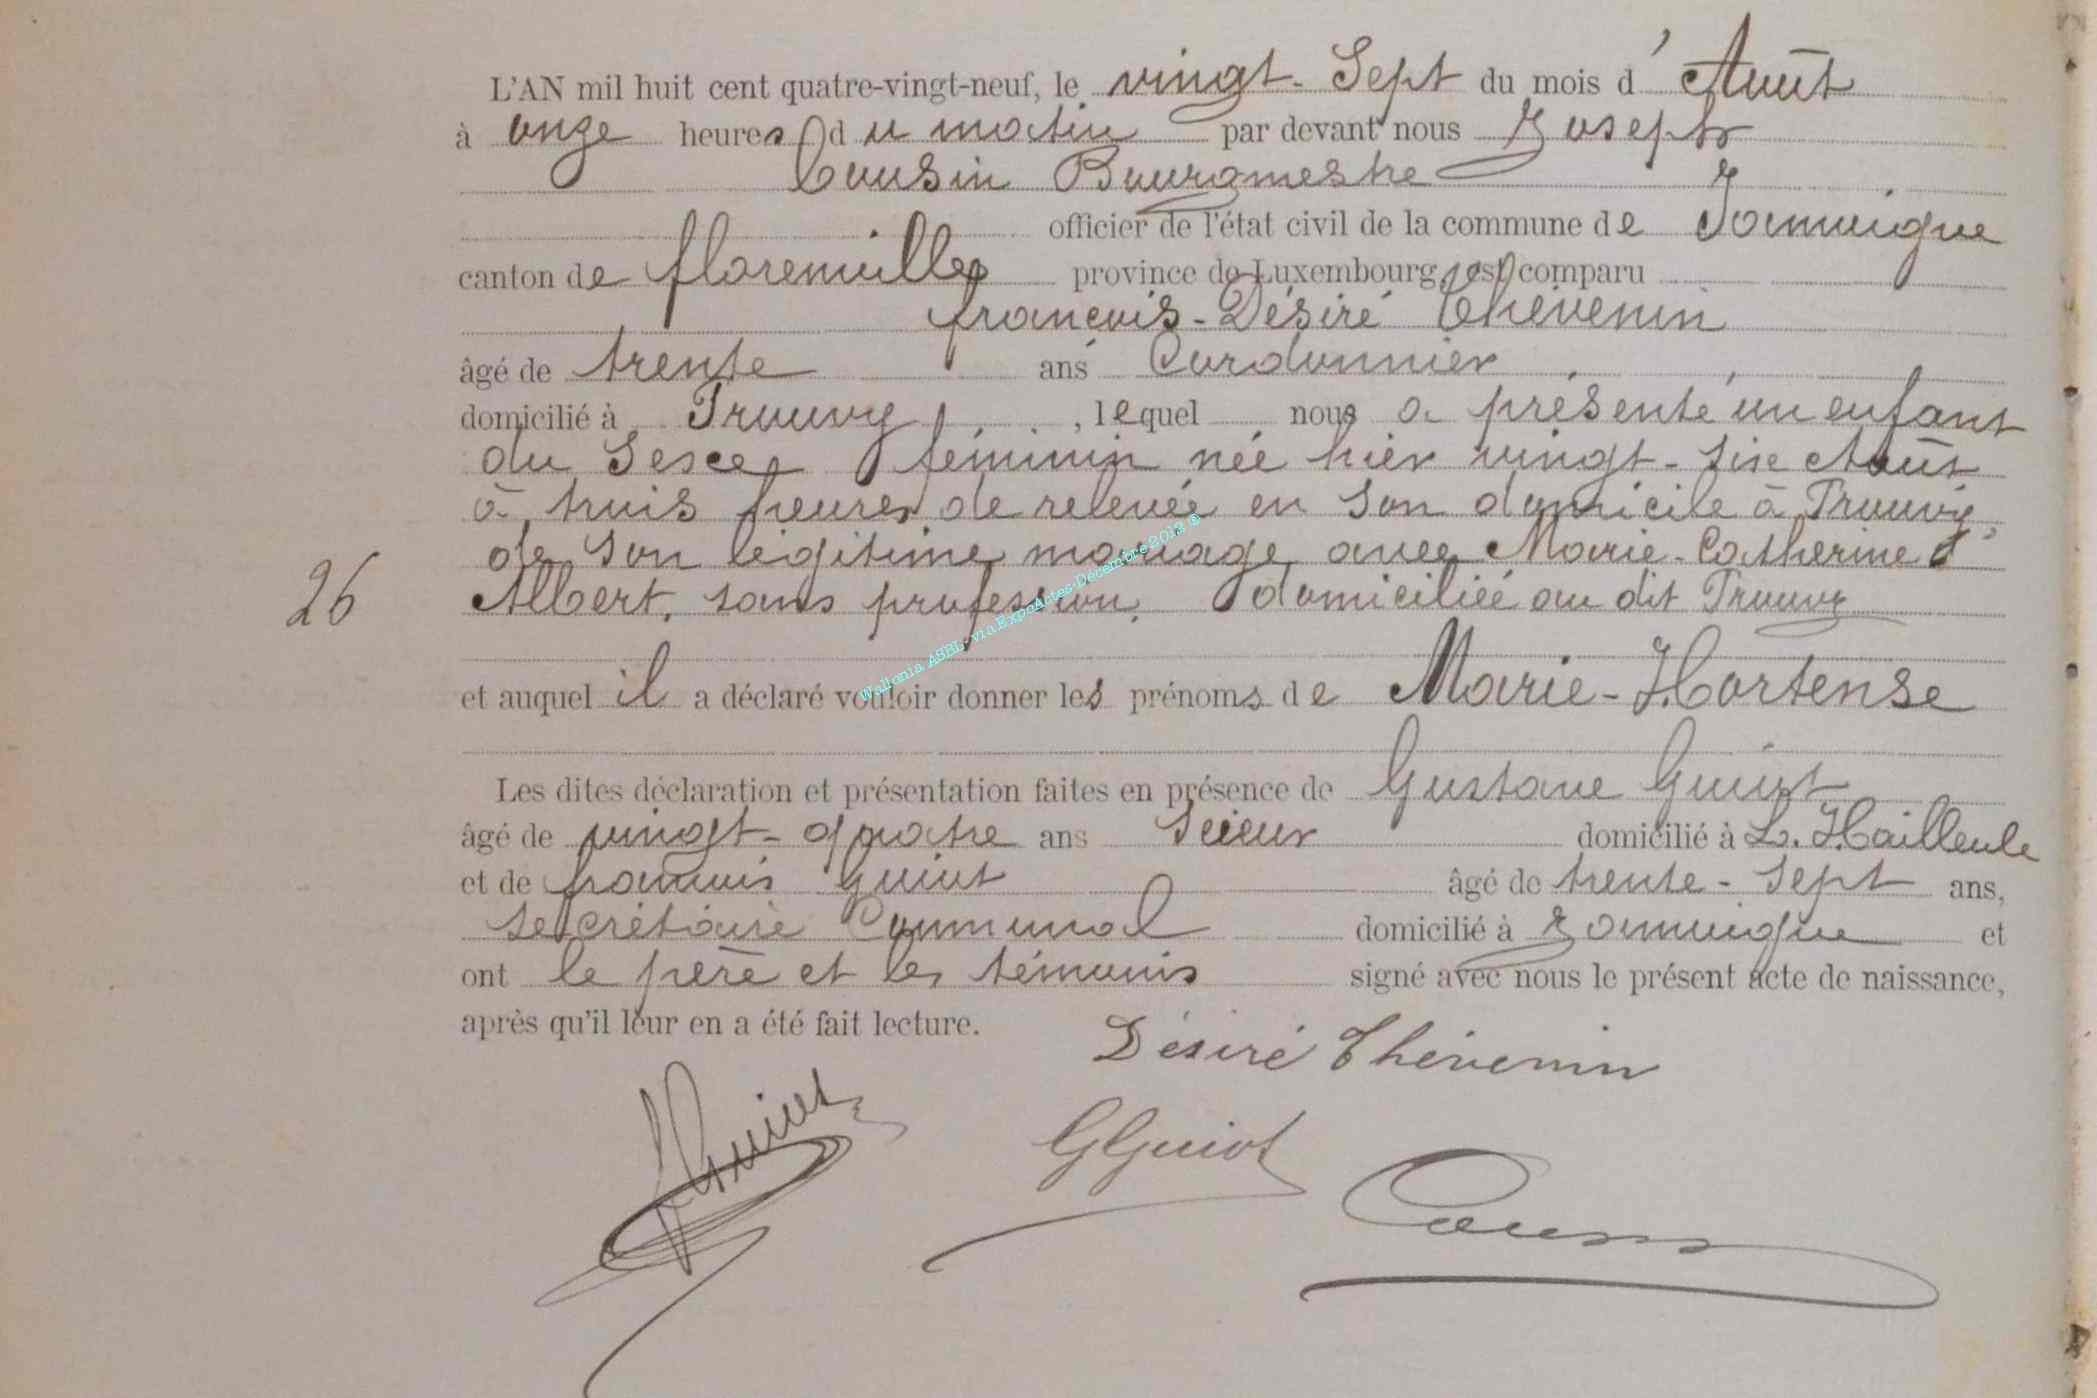 L'AN mil huit cent quatre-vingt-neuf, le vingt-Sept du mois d'Août
à onze heures du matin par devant nous Joseph
Cousin Bourgmestre
officier de l'état civil de la commune de Jamoigne
canton de florenville province de Luxembourg, est comparu
françois-Désiré Thévenin
âgé de trente ans Cordonnier
domicilié à Prouvy, lequel nous a présenté un enfant
du Sexe féminin née hier vingt-six Août
à trois heures de relevée en son domicile à Prouvy,
de son légitime mariage avec Marie-Catherine d'
Albert, sans profession, domiciliée au dit Prouvy
26
et auquel il a déclaré vouloir donner les prénoms de Marie-Hortense
Les dites déclaration et présentation faites en présence de Gustave Guiot
âgé de vingt-quatre ans Scieur domicilié à L. Hailleule
et de françois Guiot âgé de trente-Sept ans,
secrétaire Communal domicilié à Jamoigne et
ont le père et les témoins signé avec nous le présent acte de naissance,
après qu'il leur en a été fait lecture.
Désiré Thévenin
Guiot
GGuiot
Cousin
Wallonia ASBL, via ExpoActes-Décembre 2013 ©